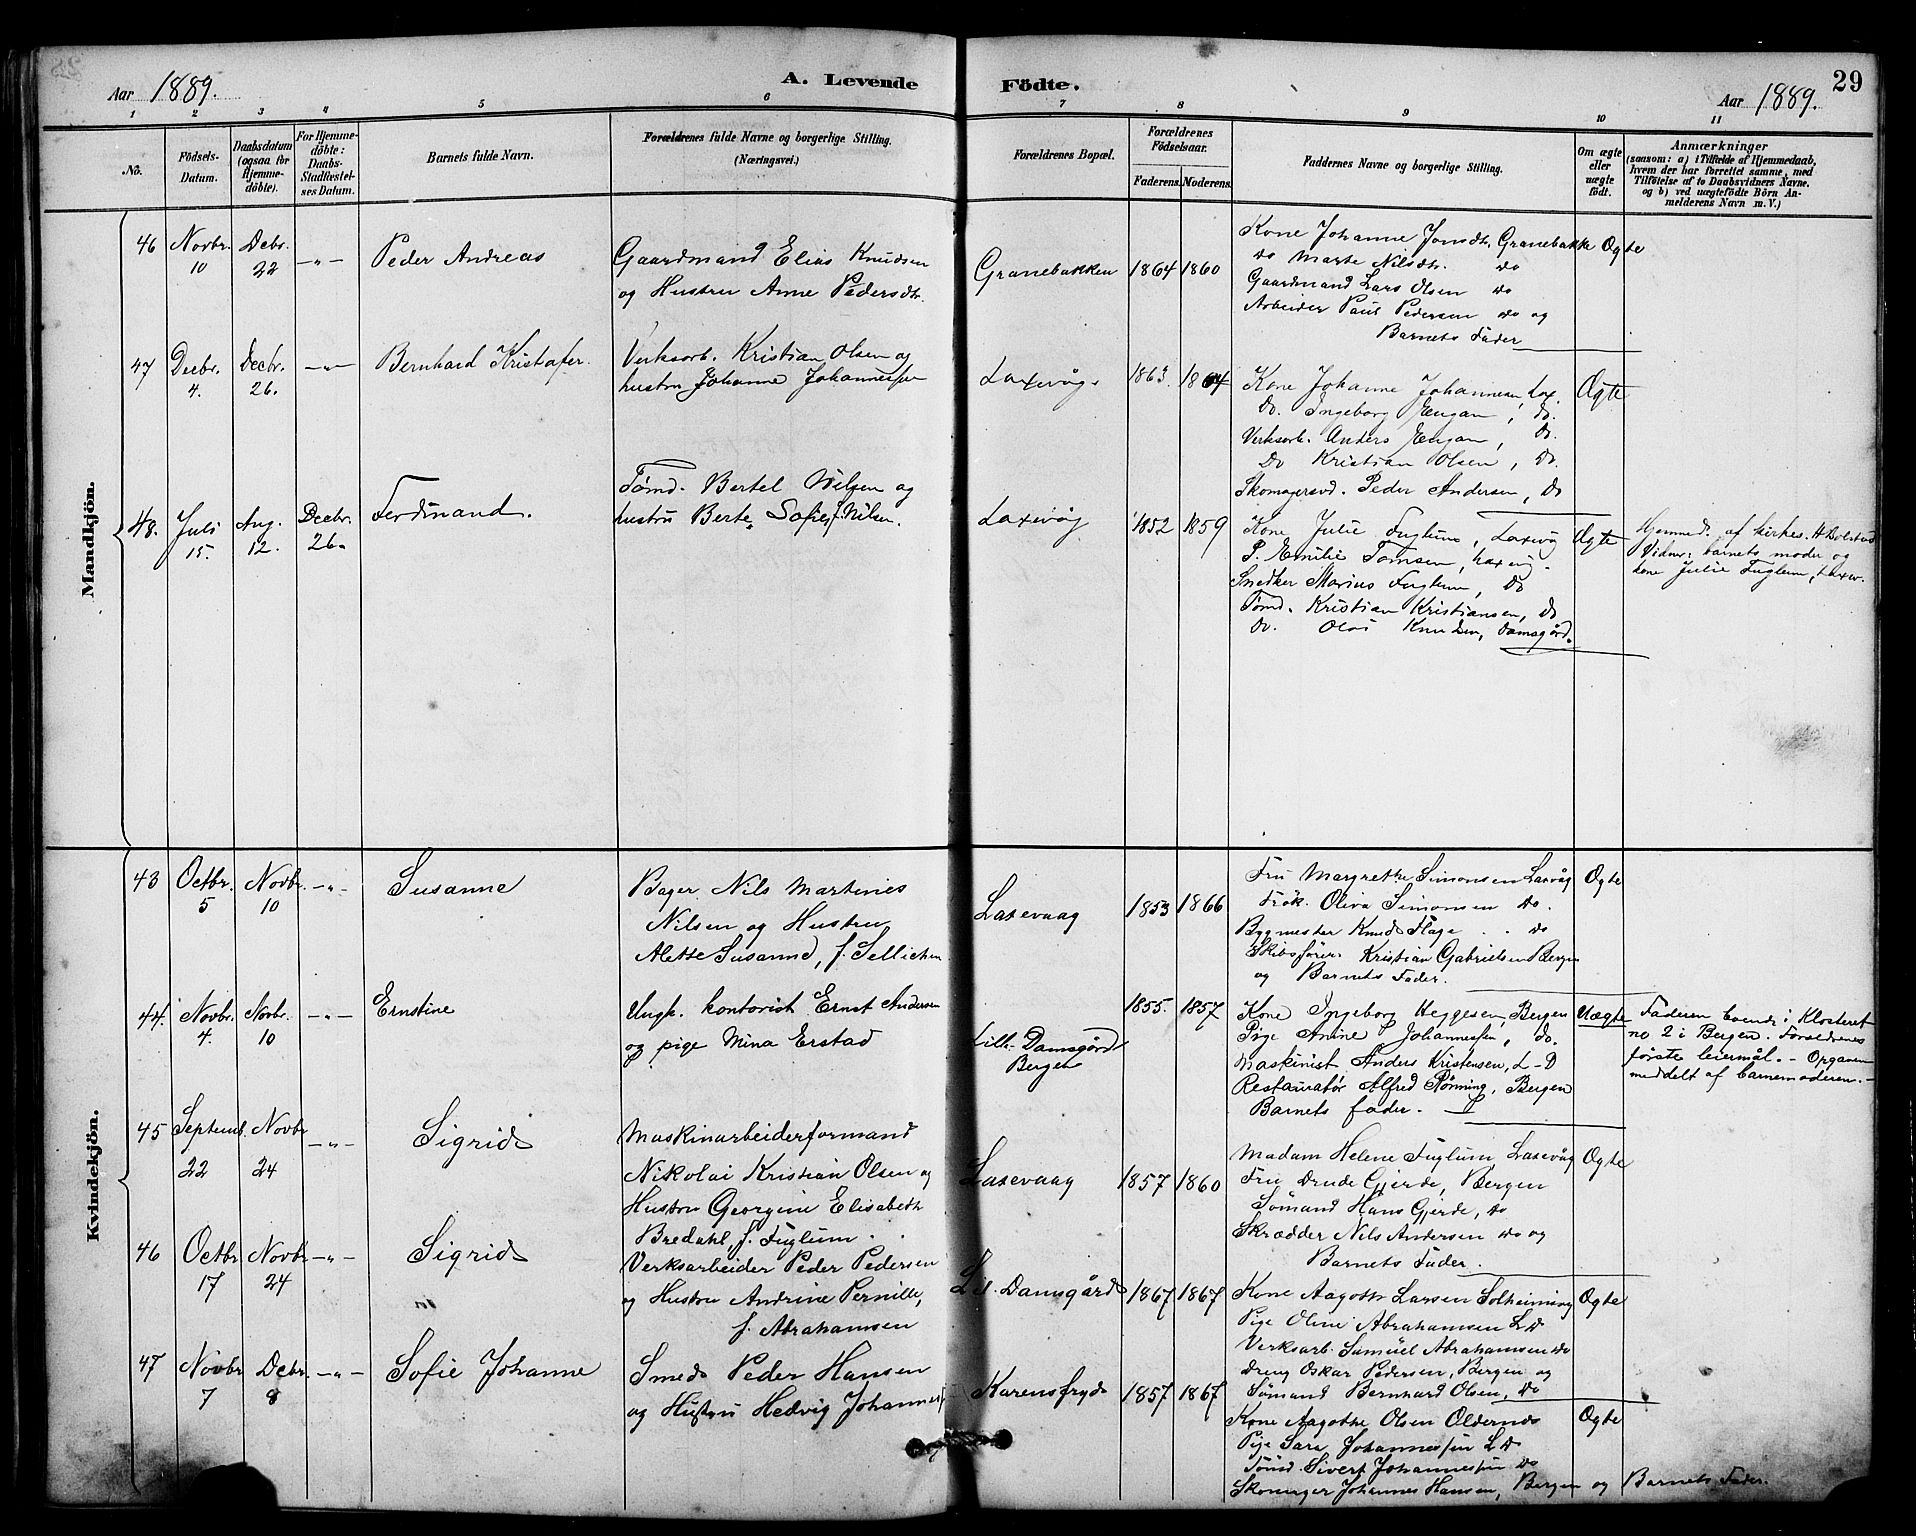 Aar 1889.
A. Levende
Födte.
29
Aar 1889.
1 2 3 4 5 6 7 8 9 10 11
No.
Födsels-
Datum.
Daabsdatum
(ogsaa for
Hjemme-
döbte).
For Hjemme-
döbte:
Daabs-
Stadfæstel-
ses Datum.
Barnets fulde Navn.
Forældrenes fulde Navne og borgerlige Stilling.
(Næringsvei.)
Forældrenes Bopæl.
Forældrenes
Födselsaar.
Faderens. Moderens.
Faddernes Navne og borgerlige Stilling.
Om ægte
eller
uægte
födt.
Anmærkninger
(saasom: a) i Tilfælde af Hjemmedaab,
hvem der har forrettet samme, med
Tilföielse af to Daabsvidners Navne.
og b) ved uægtefödte Börn An-
melderens Navn m. V.)
Mandkjön.
46
Novbr.
10
Debr.
22
-"-
Peder Andreas
Gaardmand Elias Knudsen
og Hustru Anne Pedersdtr.
Granebakken
1864
1860
Kone Johanne Jonsdtr. Granebakke
Do Marte Nilsdtr. Do
Gaardmand Lars Olsen Do
Arbeider Paul Pedersen Do og
Barnets Fader
Ægte
47
Decbr.
4.
Decbr.
26.
-"-
Bernhard Kristofer
Verksarb. Kristian Olsen og
hustru Johanne Johannessen
Laxevåg
1863.
1864
Kone Johanne Johannesen, Lax.
Do. Ingeborg, Do.
Verksarb. Anders, Do.
Do Kristian Olsen, Do.
Skomagersvd. Peder Andersen, Do
Ægte
48.
Juli
15.
Aug.
12.
Decbr.
26.
Ferdinand.
Tømd. Bertel Nilsen og
hustru Berte Sofie f. Nilsen.
Laxevåg
1852
1859
Kone Julie Fuglum, Laxevåg
P. Emilie Tomsen, Laxevåg.
Snedker Marius Fuglum, Do
Tømd. Kristian Kristiansen, Do
Do. Olai Knudsen, Damsgård.
Ægte
Hjemmed. af kirkes. H. Dolstad
Vidner: barnets moder og
kone Julie Fuglum, Laxev.
Kvindekjön.
43
Octbr.
5
Novbr.
10
-"-
Susanne
Bager Nils Martinus
Nilsen og Hustru
Alette Susanne, f. Sellichen
Laxevaag
1853
1866
Fru Margrethe Simonsen Laxvåg
Frøk. Oliva Simonsen Do.
Bygmester Knud Flage Do
Skibsfører Kristian Gabrielsen Bergen
og Barnets Fader.
Ægte
44.
Novbr.
4.
Novbr.
10
-"-
Ernstine
Ungk. kontorist Ernst Andersen
og pige Mina Erstad
Lille Damsgård
Bergen
1855.
1857
Kone Ingeborg Heggesen, Bergen
Pige Anine Johannessen, Do.
Maskinist Anders Kristensen, L-D
Restauratør Alfred Rønning, Bergen
Barnets fader.
Uægte
Faderen boende i Klosteret
no 2 i Bergen. Forældrenes
første leiermål. - Opgaven
meddelt af barnemoderen. -
45
Septemb.
22
Novbr
24
-"-
Sigrid
Maskinarbeiderformand
Nikolai Kristian Olsen og
Hustru Georgine Elisabeth
Bredahl, f. Fuglum.
Laxevaag
1857
1860
Madam Helene Fuglum Laxevåg
Fru Drude Gjerde, Bergen
Sømand Hans Gjerde, Do
Skrædder Nils Andersen Do og
Barnets Fader.
Ægte
46
Octbr
17
Novbr
24
-"-
Sigrid
Verksarbeider Peder Pedersen
og Hustru Andrine Pernille,
f. Abrahamsen
Lil. Damsgård
1867
1867
Kone Aagothe Larsen Solheimsvig
Pige Oline Abrahamsen L D
Verksarb. Samuel Abrahamsen Do
Dreng Oskar Pedersen, Bergen og
Sømand Bernhard Olsen, Do
Ægte
47
Novbr
7
Debr.
8
-"-
Sofie Johanne
Smed Peder Hansen
og Hustru Hedvig Johannes
Karensfryd
1857
1867
Kone Aagothe Olsen
Pige Sara Johannessen L D
Tømd. Sivert Johannessen Do
Skomager Johannes Hansen, Bergen og Barnets Fader.
Ægte